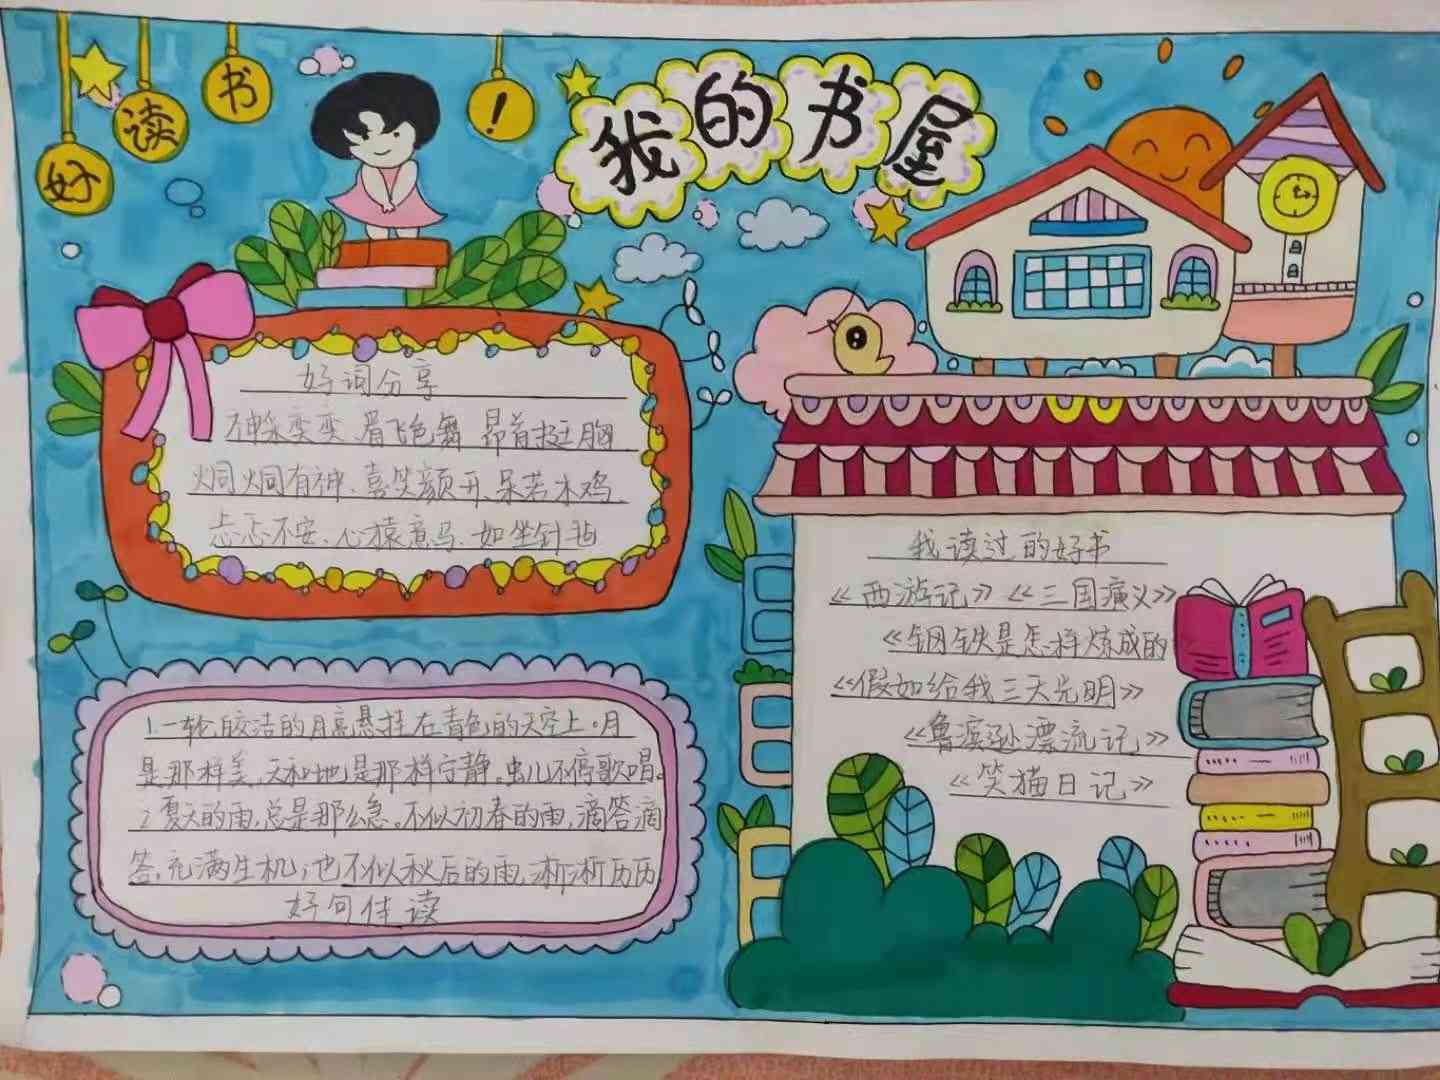 好读书!
我的书屋
好词分享
神采奕奕 眉飞色舞 昂首挺胸
炯炯有神、喜笑颜开、呆若木鸡
忐忑不安、心猿意马、如坐针毡
1.一轮皎洁的月亮悬挂在青色的天空上。月
是那样美,天和地是那样宁静。虫儿不停歌唱。
2夏天的雨,总是那么急。不似初春的雨,滴答滴
答,充满生机,也不似秋后的雨,淅淅历历
好句佳读
我读过的好书
《西游记》《三国演义》
《钢铁是怎样炼成的
《假如给我三天光明》
《鲁滨逊漂流记》
《笑猫日记》